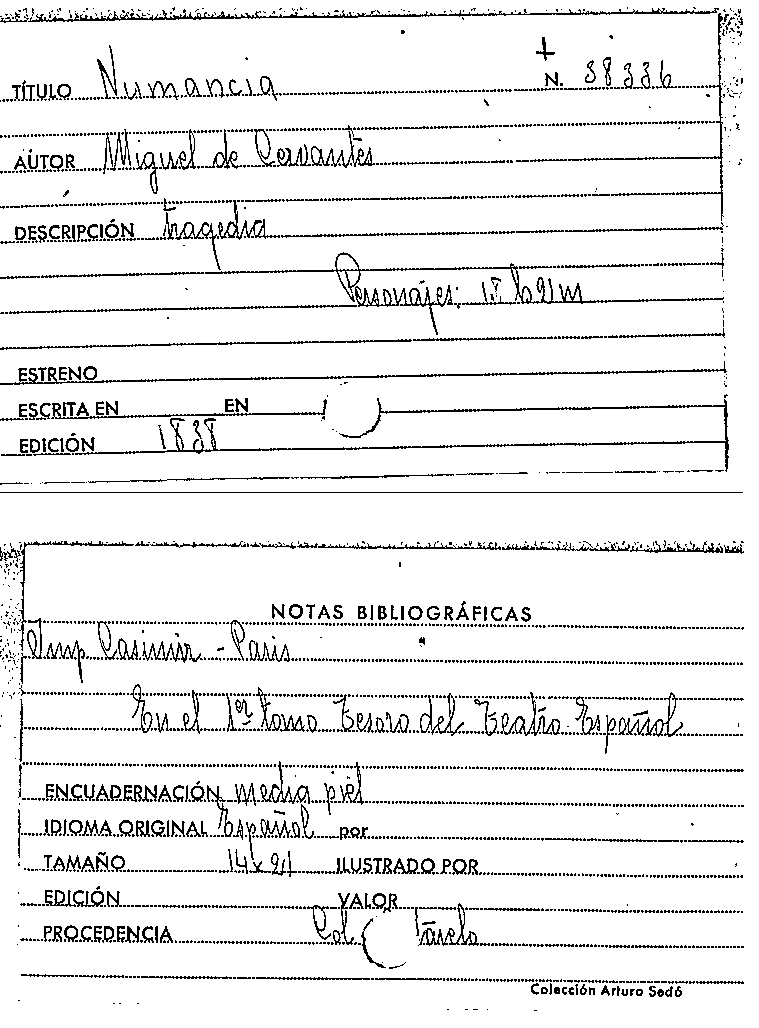 TÍTULO Numancia N. 38336
AUTOR Miguel de Cervantes
DESCRIPCIÓN tragedia
Personajes: 18 h 2 m
ESTRENO
ESCRITA EN EN
EDICIÓN 1838
NOTAS BIBLIOGRÁFICAS
Imp Casimir - Paris
En el 1er tomo Tesoro del Teatro Español
ENCUADERNACIÓN media piel
IDIOMA ORIGINAL Español por
TAMAÑO 14x21 ILUSTRADO POR
EDICIÓN VALOR
PROCEDENCIA Col
Colección Arturo Sedó